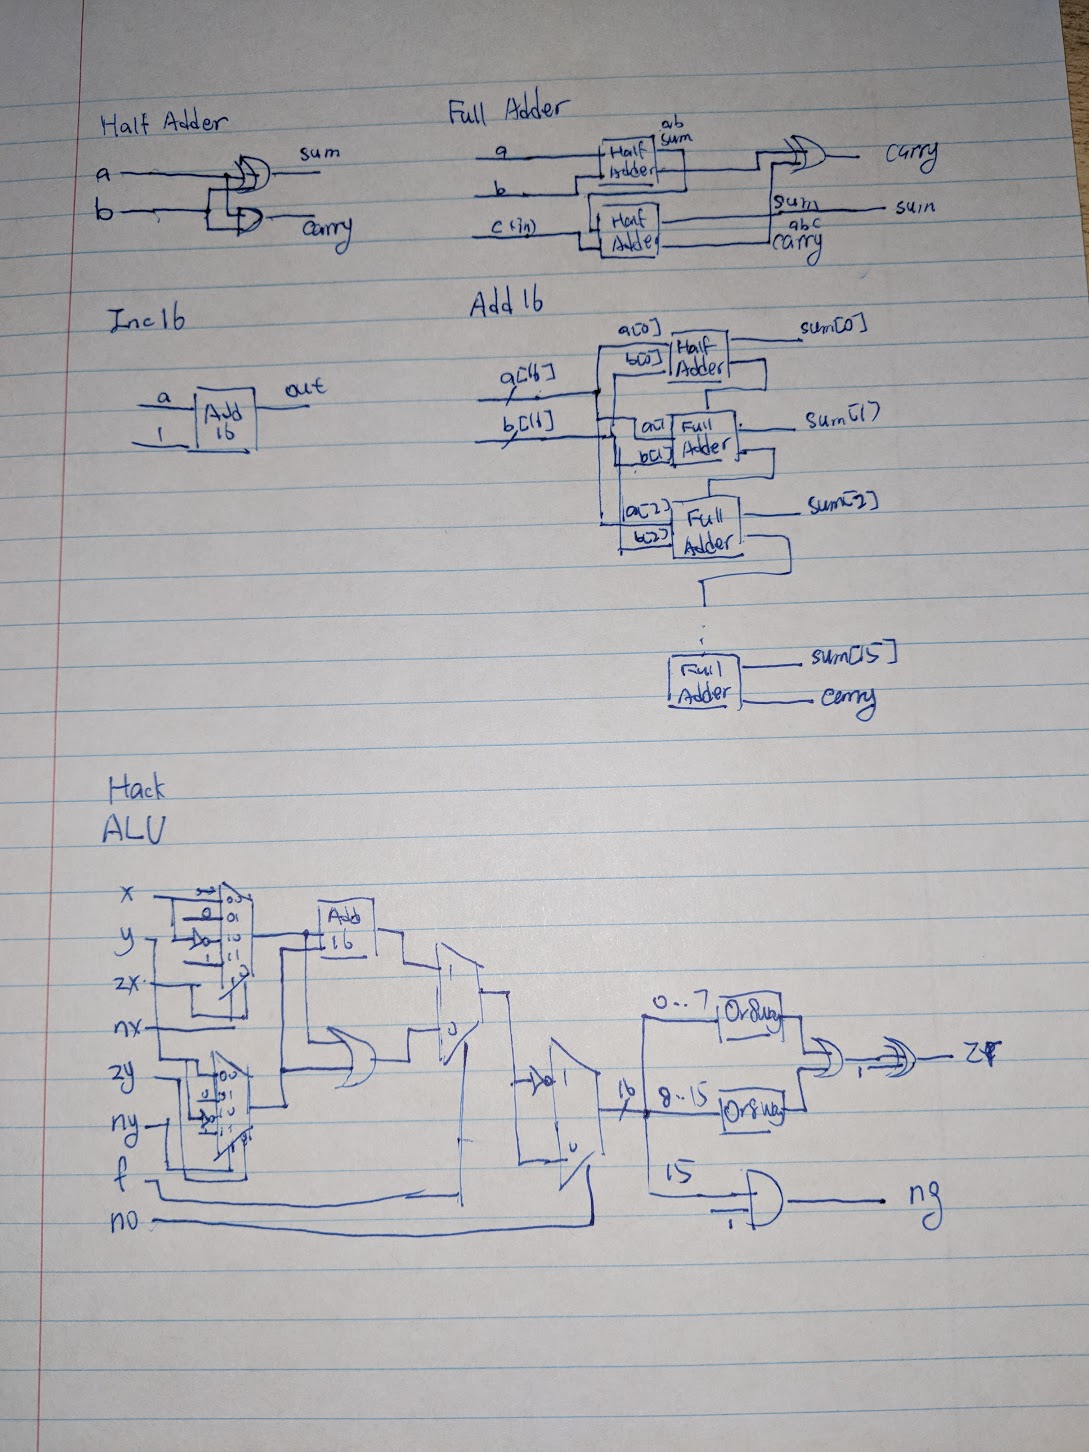 Half Adder
a
b
sum
carry
Full Adder
a
b
c (in)
Half
Adder
ab
sum
Half
Adder
carry
sum
sum
abc
carry
Inc16
a
1
Add
16
out
Add 16
a[16]
b[16]
a[0]
b[0]
Half
Adder
sum[0]
a[1]
b[1]
Full
Adder
sum[1]
a[2]
b[2]
Full
Adder
sum[2]
Full
Adder
sum[15]
carry
Hack
ALU
x
y
zx
nx
zy
ny
f
no
00
0
01
10
11
00
01
10
11
Add
16
1
0
1
0
16
0..7
Or8Way
8..15
Or8Way
1
zr
15
1
ng